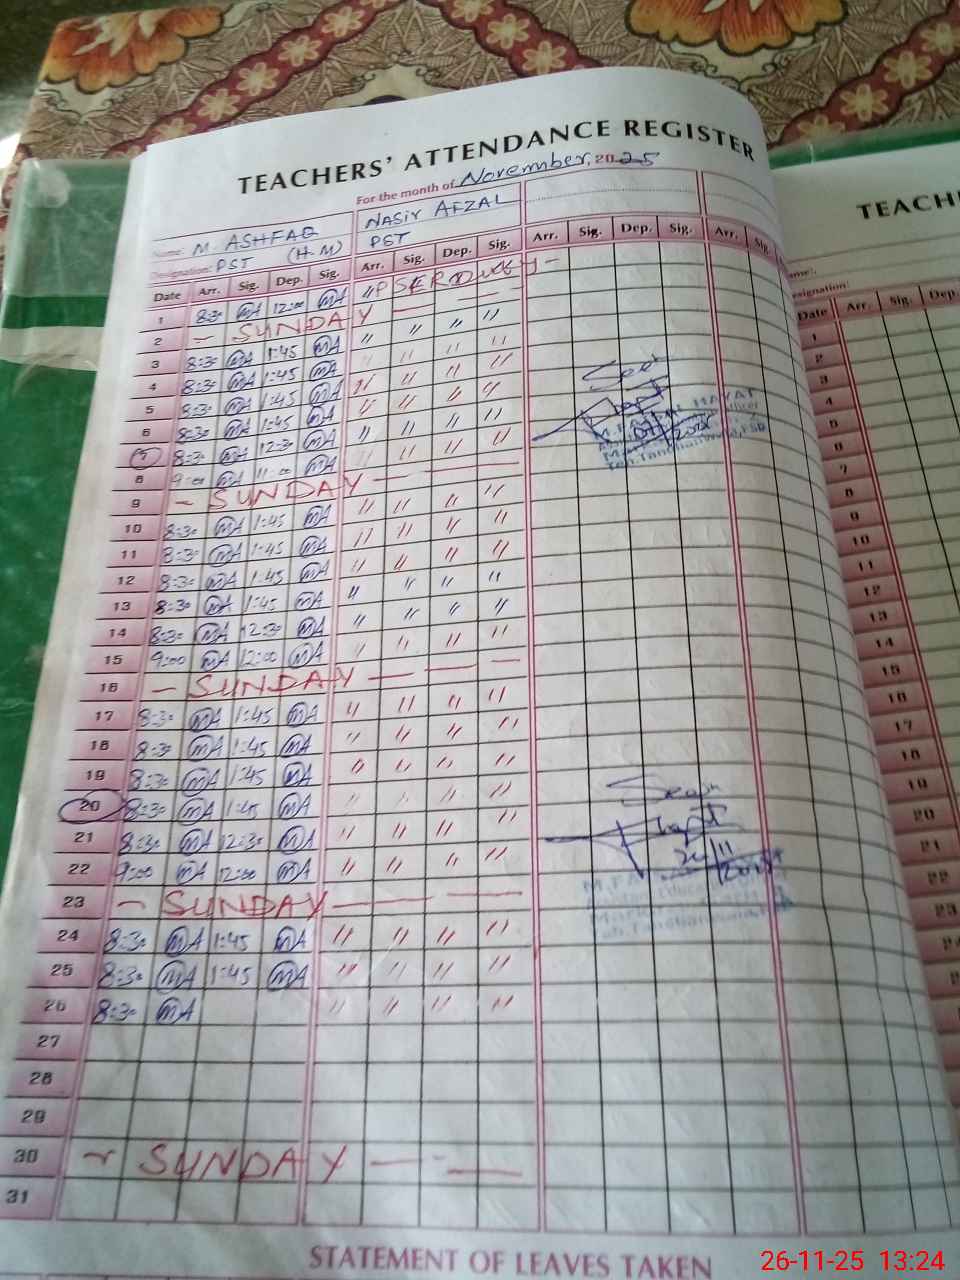 TEACHERS' ATTENDANCE REGISTER
For the month of November, 2025
Name: M. ASHFAQ NASIr AFZAL
Designation: PST (H.M) PST
Date Arr. Sig. Dep. Sig. Arr. Sig. Dep. Sig. Arr. Sig. Dep. Sig. Arr. Sig.
1 8:30 MA 12:00 MA "PSER Duty -
2 - SUNDAY — — —
3 8:30 MA 1:45 MA " " " "
4 8:30 MA 1:45 MA " " " "
5 8:30 MA 1:45 MA " " " "
6 8:30 MA 1:45 MA " " " "
7 8:30 MA 12:30 MA " " " "
8 9:00 MA 11:00 MA " " " "
9 - SUNDAY — — —
10 8:30 MA 1:45 MA " " " "
11 8:30 MA 1:45 MA " " " "
12 8:30 MA 1:45 MA " " " "
13 8:30 MA 1:45 MA " " " "
14 8:30 MA 12:30 MA " " " "
15 9:00 MA 12:00 MA " " " "
16 - SUNDAY — — —
17 8:30 MA 1:45 MA " " " "
18 8:30 MA 1:45 MA " " " "
19 8:30 MA 1:45 MA " " " "
20 8:30 MA 1:45 MA " " " "
21 8:30 MA 12:30 MA " " " "
22 9:00 MA 12:00 MA " " " "
23 - SUNDAY — — —
24 8:30 MA 1:45 MA " " " "
25 8:30 MA 1:45 MA " " " "
26 8:30 MA " " " "
27
28
29
30 - SUNDAY — - —
31
STATEMENT OF LEAVES TAKEN
HAYAT
Officer
Teh. Tandlianwala, FSD
2025
M.FA
Teh. Tandlianwala
TEACH
Date Arr. Sig. Dep.
1
2
3
4
5
6
7
8
9
10
11
12
13
14
15
16
17
18
19
20
21
22
23
26-11-25 13:24